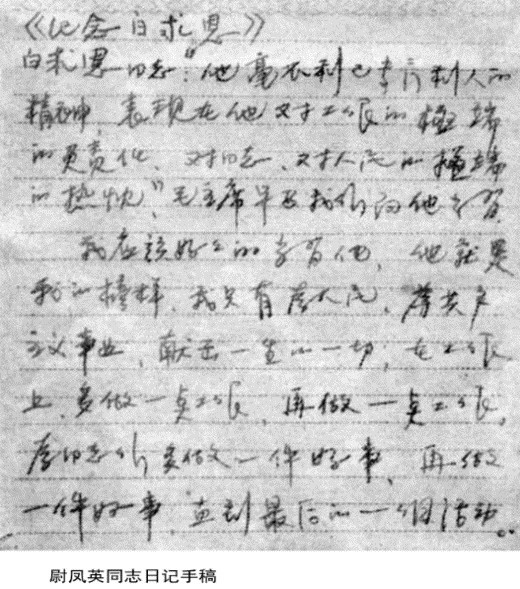 《纪念白求恩》
白求恩同志"他毫不利己专门利人的
精神，表现在他对工作的極端
的负责任，对同志、对人民的極端
的热忱"，毛主席号召我们向他学習
我应该好々的学習他，他就是
我的榜样，我只有为人民，为共产
主义事业，献出一生的一切，在工作
上，多做一点工作，再做一点工作，
为同志们多做一件好事，再做
一件好事，直到最后的一个活动。
尉凤英同志日记手稿